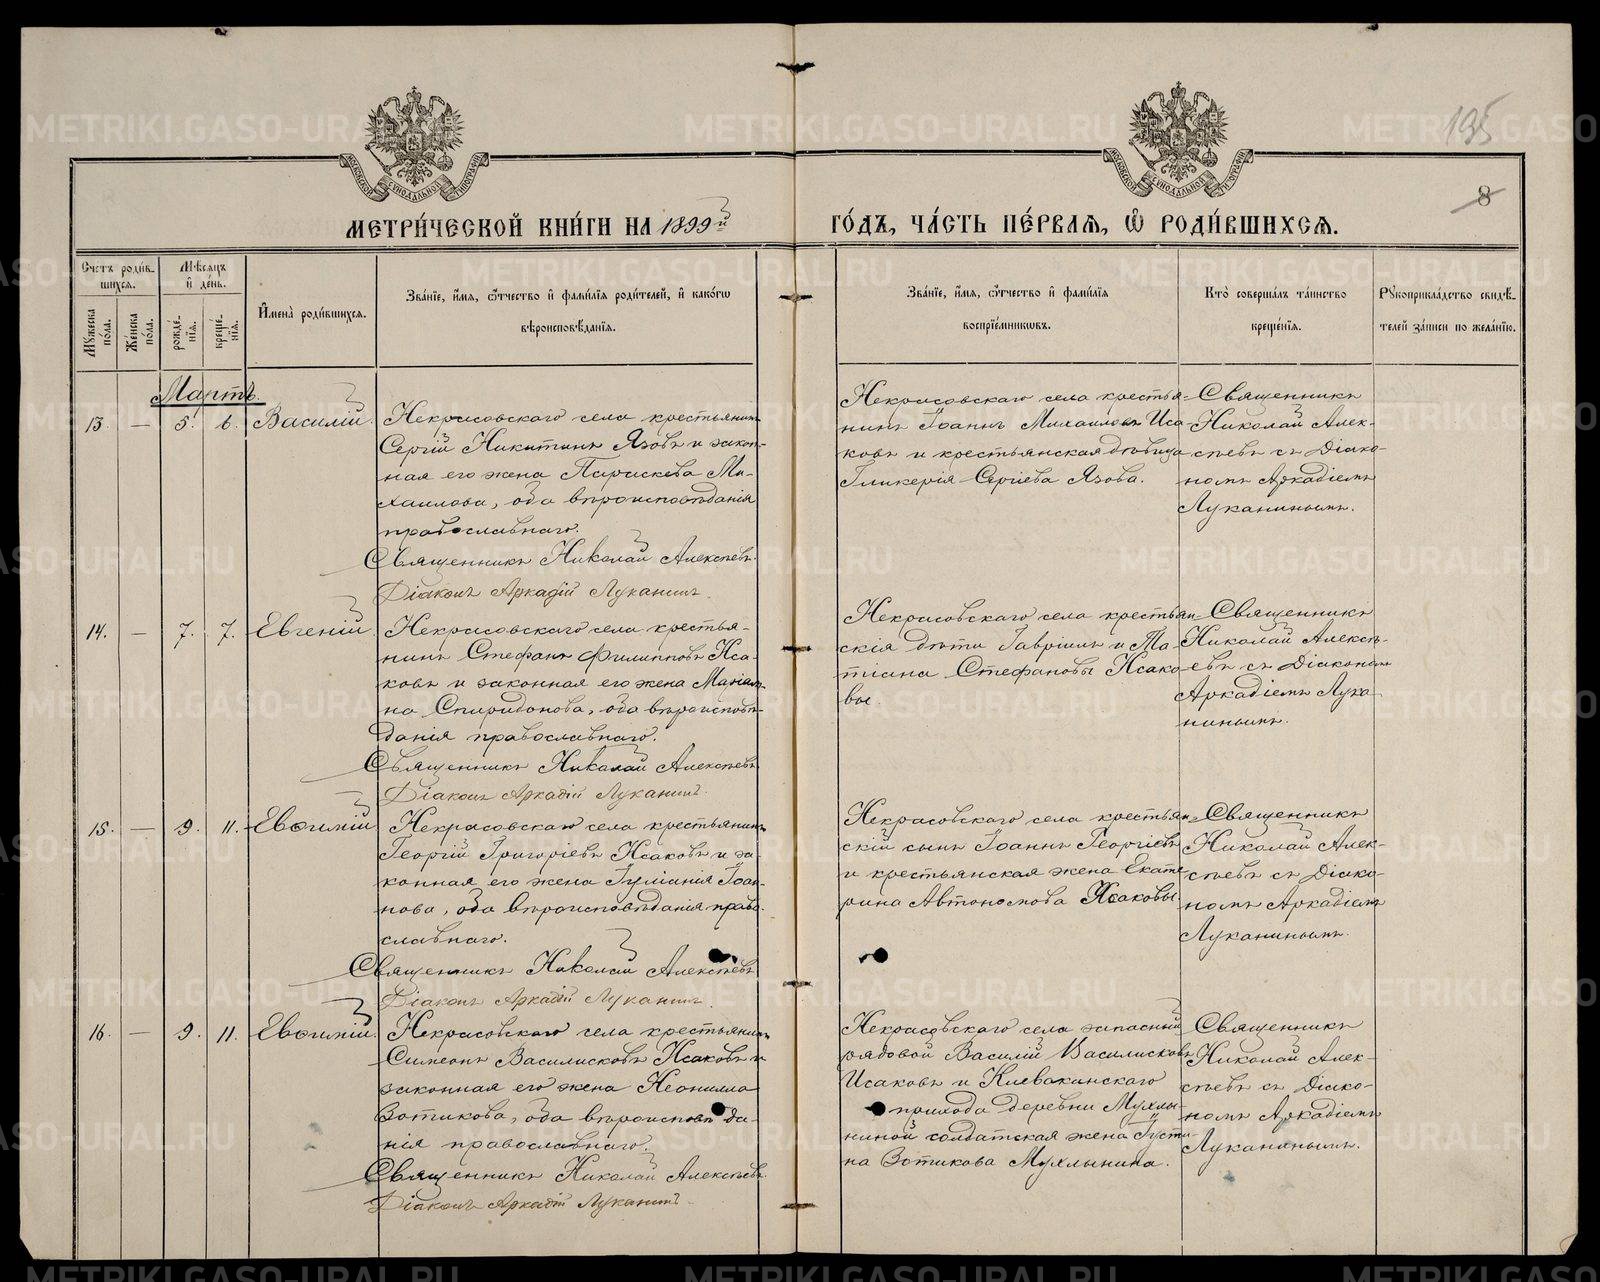 METRIKI.GASO-URAL.RU
195
8
МЕТРИ́ЧЕСКОЙ КНИ́ГИ НА 1899й ГО́ДЪ, ЧА́СТЬ ПЕ́РВАЯ, Ѡ РОДИ́ВШИХСЯ.
Счетъ роди́в-
шихся.
Мѣсяцъ
и де́нь.
Мꙋжеска
по́ла.
Же́нска
по́ла.
рожде́-
нїя.
креще́-
нїя.
Имена̀ роди́вшихся.
Зва́нїе, и́мя, ѻ́тчество и фами́лїя роди́телей, и како́гѡ
вѣроисповѣ́данїя.
Зва́нїе, и́мя, ѻ́тчество и фами́лїя
воспрїе́мникѡвъ.
Кто̀ соверша́лъ та́инство
креще́нїя.
Рꙋкоприкла́дство свидѣ́-
телей за́писи по жела́нїю.
Мартъ.
13. — 5. 6. Василій.
Некрасовскаго села крестьянинъ
Сергій Никитинъ Язовъ и закон-
ная его жена Параскева Ми-
хаилова, оба вѣроисповѣданія
православнаго.
Священникъ Николай Алексѣевъ.
Діаконъ Аркадій Луканинъ.
Некрасовскаго села крестья-
нинъ Іоаннъ Михаиловъ Иса-
ковъ и крестьянская дѣвица
Гликерія Сергіева Язова.
Священникъ
Николай Алек-
сѣевъ съ Діако-
номъ Аркадіемъ
Луканинымъ.
14. — 7. 7. Евгеній.
Некрасовскаго села крестья-
нинъ Стефанъ Филипповъ Иса-
ковъ и законная его жена Маріам-
на Спиридонова, оба вѣроисповѣ-
данія православнаго.
Священникъ Николай Алексѣевъ
Діаконъ Аркадій Луканинъ.
Некрасовскаго села крестьян-
скія дѣти Гавріилъ и Та-
тіана Стефановы Исако-
вы.
Священникъ
Николай Алексѣ-
евъ съ Діакономъ
Аркадіемъ Лука-
нинымъ.
15. — 9. 11. Евѳимій
Некрасовскаго села крестьянинъ
Георгій Григоріевъ Исаковъ и за-
конная его жена Іуліанія Іоан-
нова, оба вѣроисповѣданія право-
славнаго.
Священникъ Николай Алексѣевъ
Діаконъ Аркадій Луканинъ.
Некрасовскаго села крестьян-
скій сынъ Іоаннъ Георгіевъ
и крестьянская жена Екате-
рина Автономова Исаковы.
Священникъ
Николай Алек-
сѣевъ съ Діако-
номъ Аркадіемъ
Луканинымъ.
16. — 9. 11. Евѳимій.
Некрасовскаго села крестьянинъ
Симеонъ Василисковъ Исаковъ и
законная его жена Неонилла
Зотикова, оба вѣроисповѣда-
нія православнаго.
Священникъ Николай Алексѣевъ
Діаконъ Аркадій Луканинъ.
Некрасовскаго села запасный
рядовой Василій Василисковъ
Исаковъ и Клевакинскаго
прихода деревни Мухлы-
ниной солдатская жена Іусти-
на Зотикова Мухлынина.
Священникъ
Николай Алек-
сѣевъ съ Діако-
номъ Аркадіемъ
Луканинымъ.